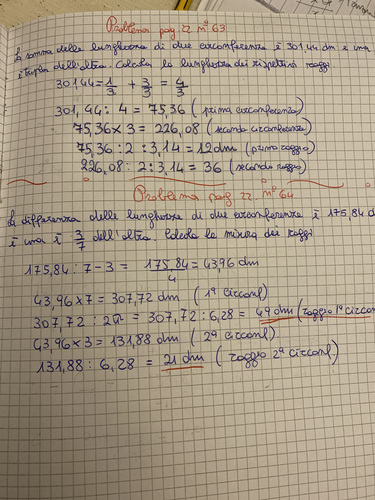 Problema pag 22 n° 63
La somma delle lunghezze di due circonferenze è 301,44 dm e una
è tripla dell'altra. Calcola la lunghezza dei rispettivi raggi
301,44 = 1/3 + 3/3 = 4/3
301,44 : 4 = 75,36 (prima circonferenza)
75,36 x 3 = 226,08 (seconda circonferenza)
75,36 : 2 : 3,14 = 12 dm (primo raggio)
226,08 : 2 : 3,14 = 36 (secondo raggio)
Problema pag 22 n° 64
La differenza delle lunghezze di due circonferenze è 175,84 d
è una è 3/7 dell'altra. Calcola la misura dei raggi
175,84 : 7-3 = 175,84/4 = 43,96 dm
43,96 x 7 = 307,72 dm (1ª Circonf)
307,72 : 2π = 307,72 : 6,28 = 49 dm (raggio 1ª circon
43,96 x 3 = 131,88 dm (2ª Circonf)
131,88 : 6,28 = 21 dm (raggio 2ª circonf)